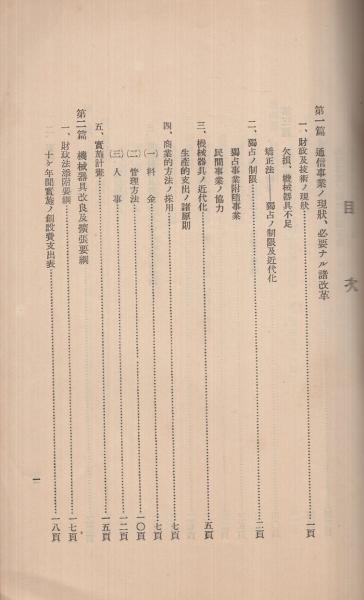 目次
第一篇 通信事業ノ現狀、必要ナル諸改革
一、財政及技術ノ現狀……一頁
欠損、機械器具不足
矯正法――獨占ノ制限及近代化
二、獨占ノ制限……二頁
獨占事業附隨事業
民間事業ノ協力
三、機械器具ノ近代化……五頁
生產的支出ノ諸原則……七頁
四、商業的方法ノ採用……七頁
(一)料金……七頁
(二)管理方法……一〇頁
(三)人事……一二頁
五、實施計畫……一五頁
第二篇 機械器具改良及擴張要綱
一、財政法添附要綱……一七頁
十ケ年間實施ノ創設費支出表……一八頁
一